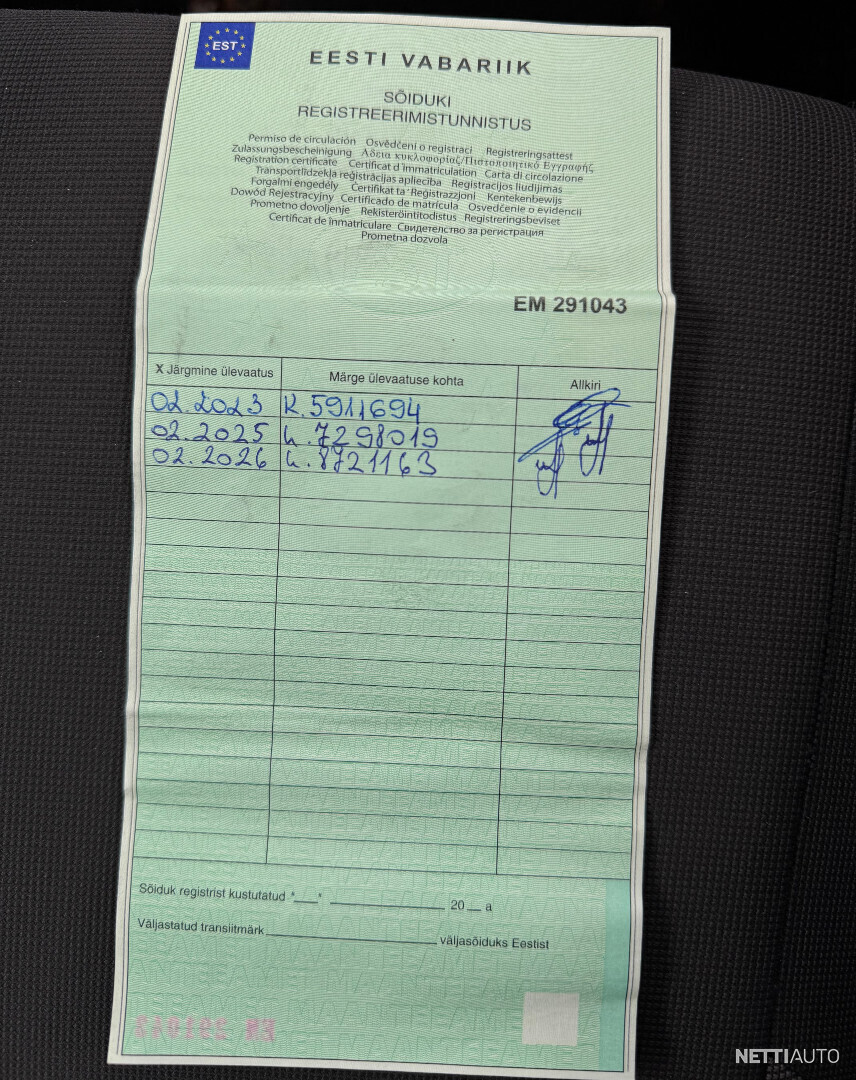 EST
EESTI VABARIIK
SÕIDUKI
REGISTREERIMISTUNNISTUS
Permiso de circulación Osvědčení o registraci Registreringsattest
Zulassungsbescheinigung Άδεια κυκλοφορίας/Πιστοποιητικό Εγγραφής
Registration certificate Certificat d'immatriculation Carta di circolazione
Transportlīdzekļa reģistrācijas apliecība Registracijos liudijimas
Forgalmi engedély Ċertifikat ta' Reġistrazzjoni Kentekenbewijs
Dowód Rejestracyjny Certificado de matrícula Osvedčenie o evidencii
Prometno dovoljenje Rekisteröintitodistus Registreringsbeviset
Certificat de înmatriculare Свидетелство за регистрация
Prometna dozvola
EM 291043
X Järgmine ülevaatus Märge ülevaatuse kohta Allkiri
02.2023 K.5911694
02.2025 h.7298019
02.2026 h.8721163
Sõiduk registrist kustutatud "__" ________ 20 __ a
Väljastatud transiitmärk ________ väljasõiduks Eestist
EM 291043
NETTIAUTO